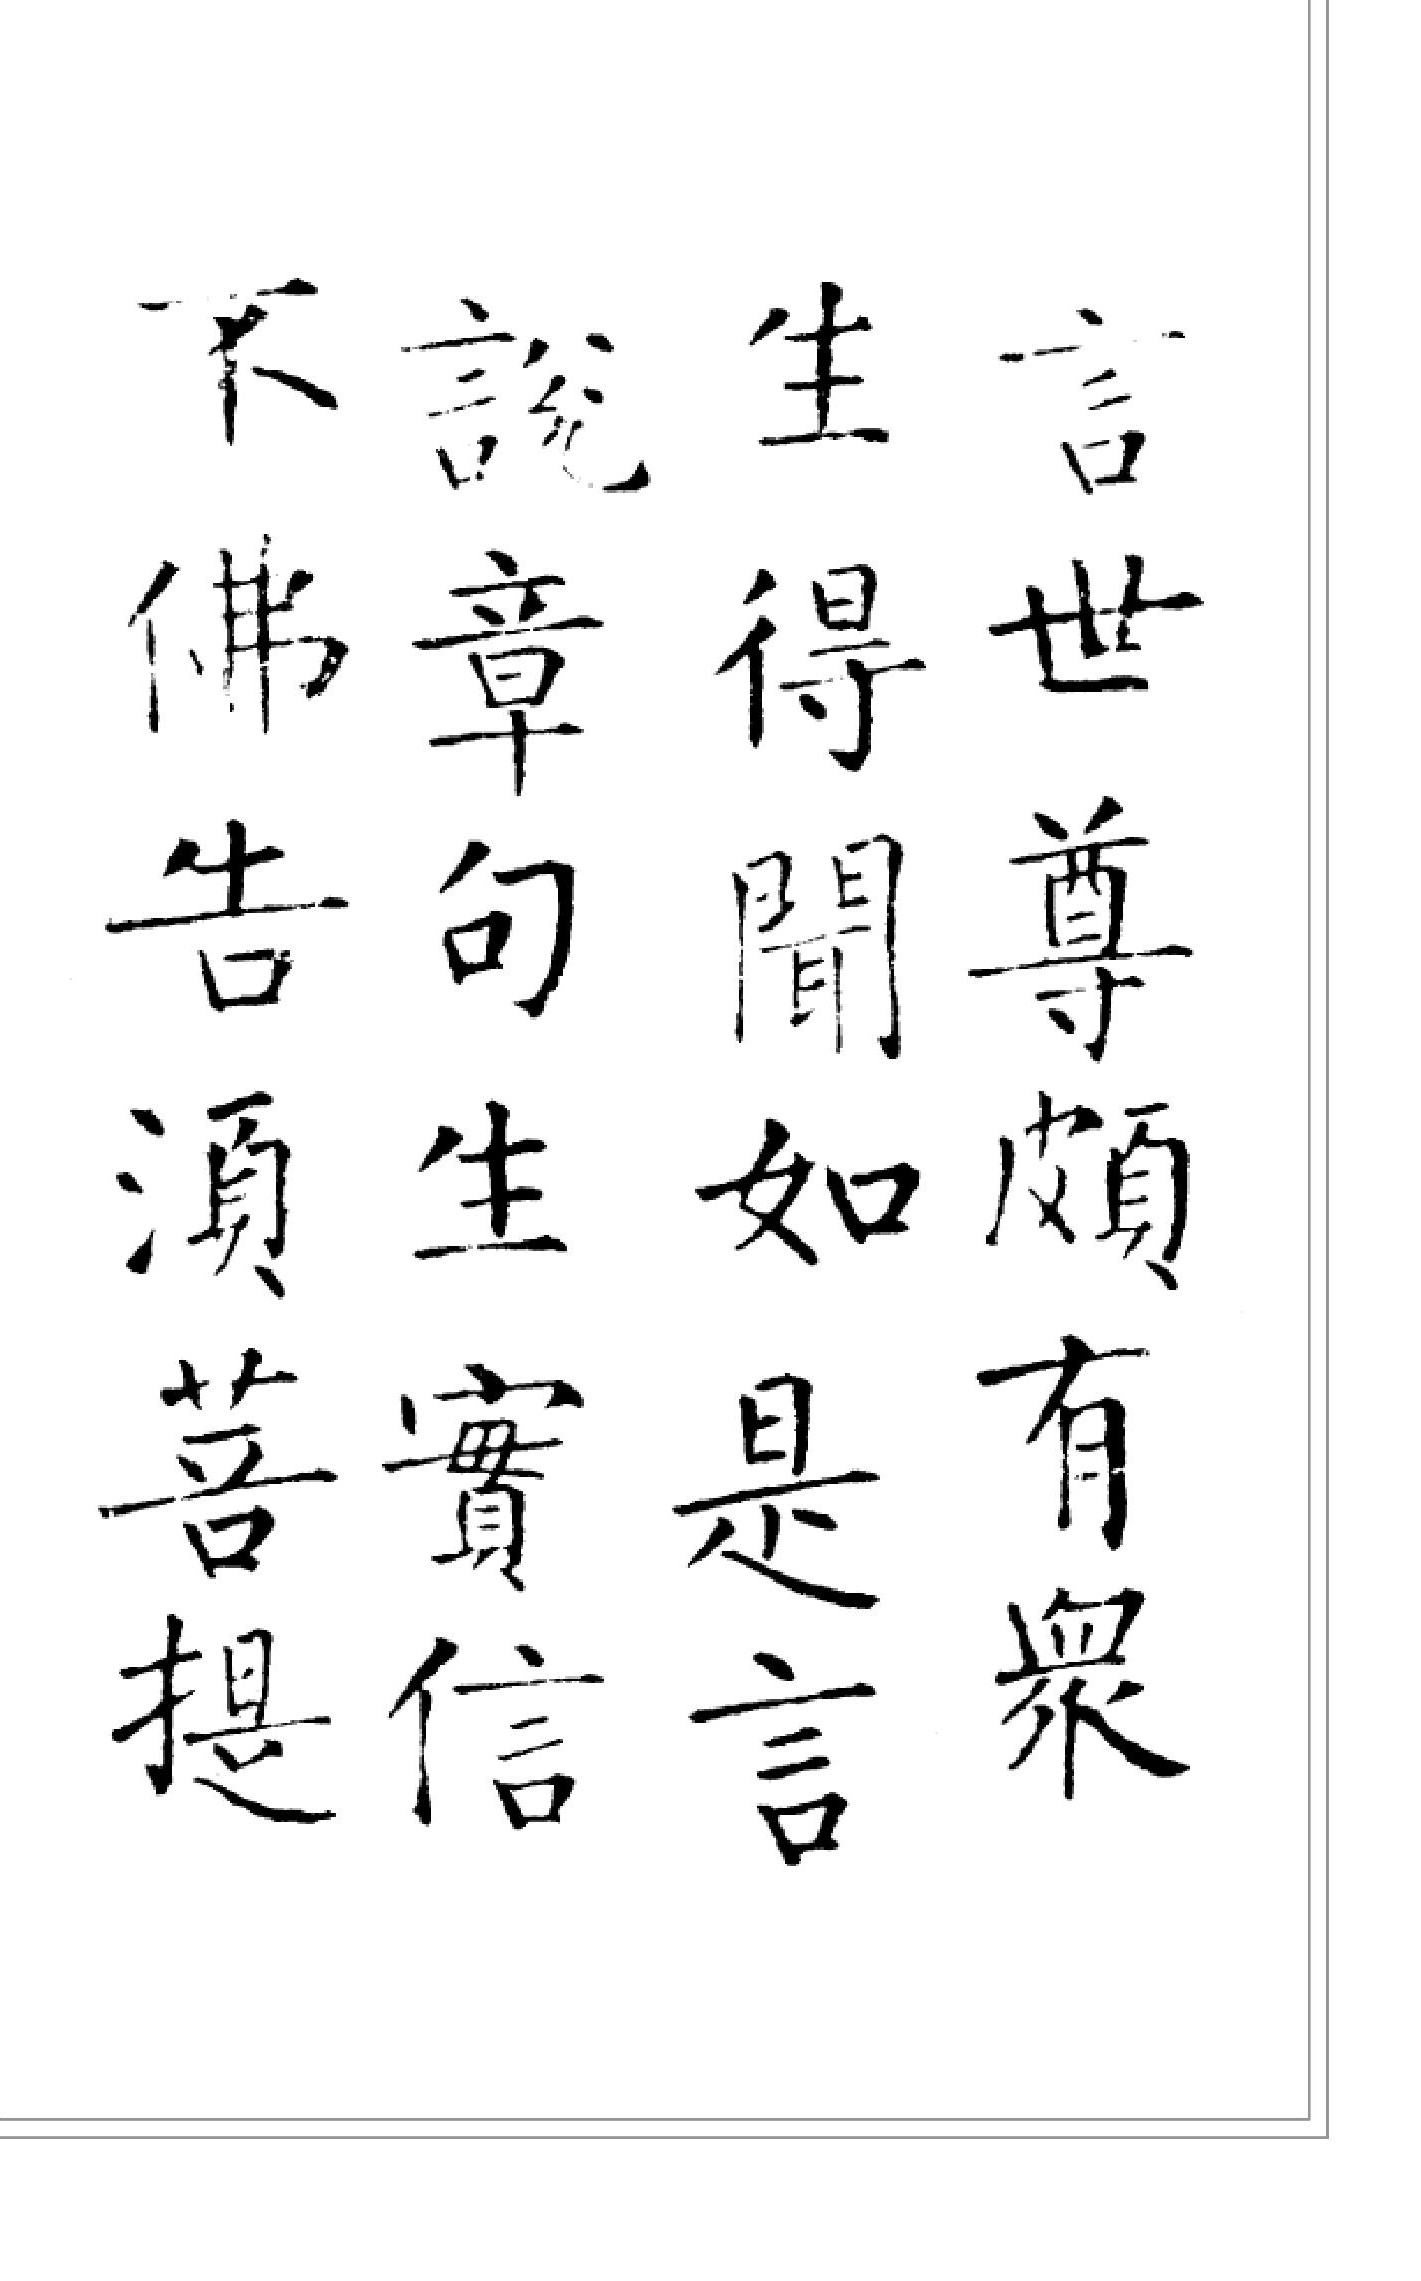 言世尊頗有衆
生得聞如是言
說章句生實信
不佛告湏菩提